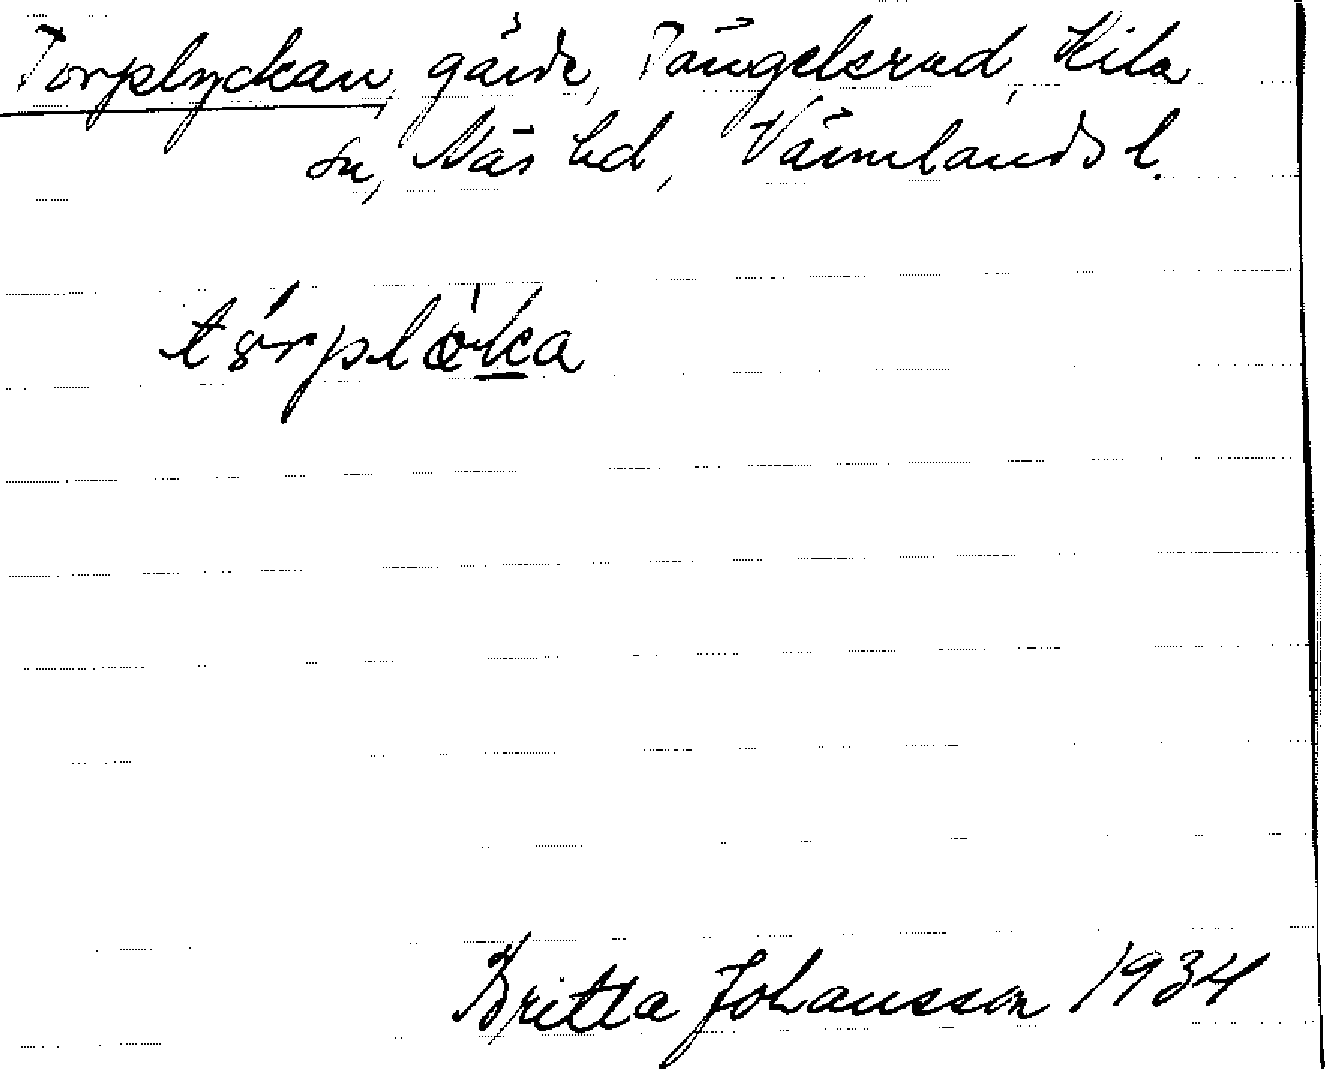 Torplyckan, gärde, Tångelsrud, Kila
sn, Näs hd, Värmlands l.
Britta Johansson 1934